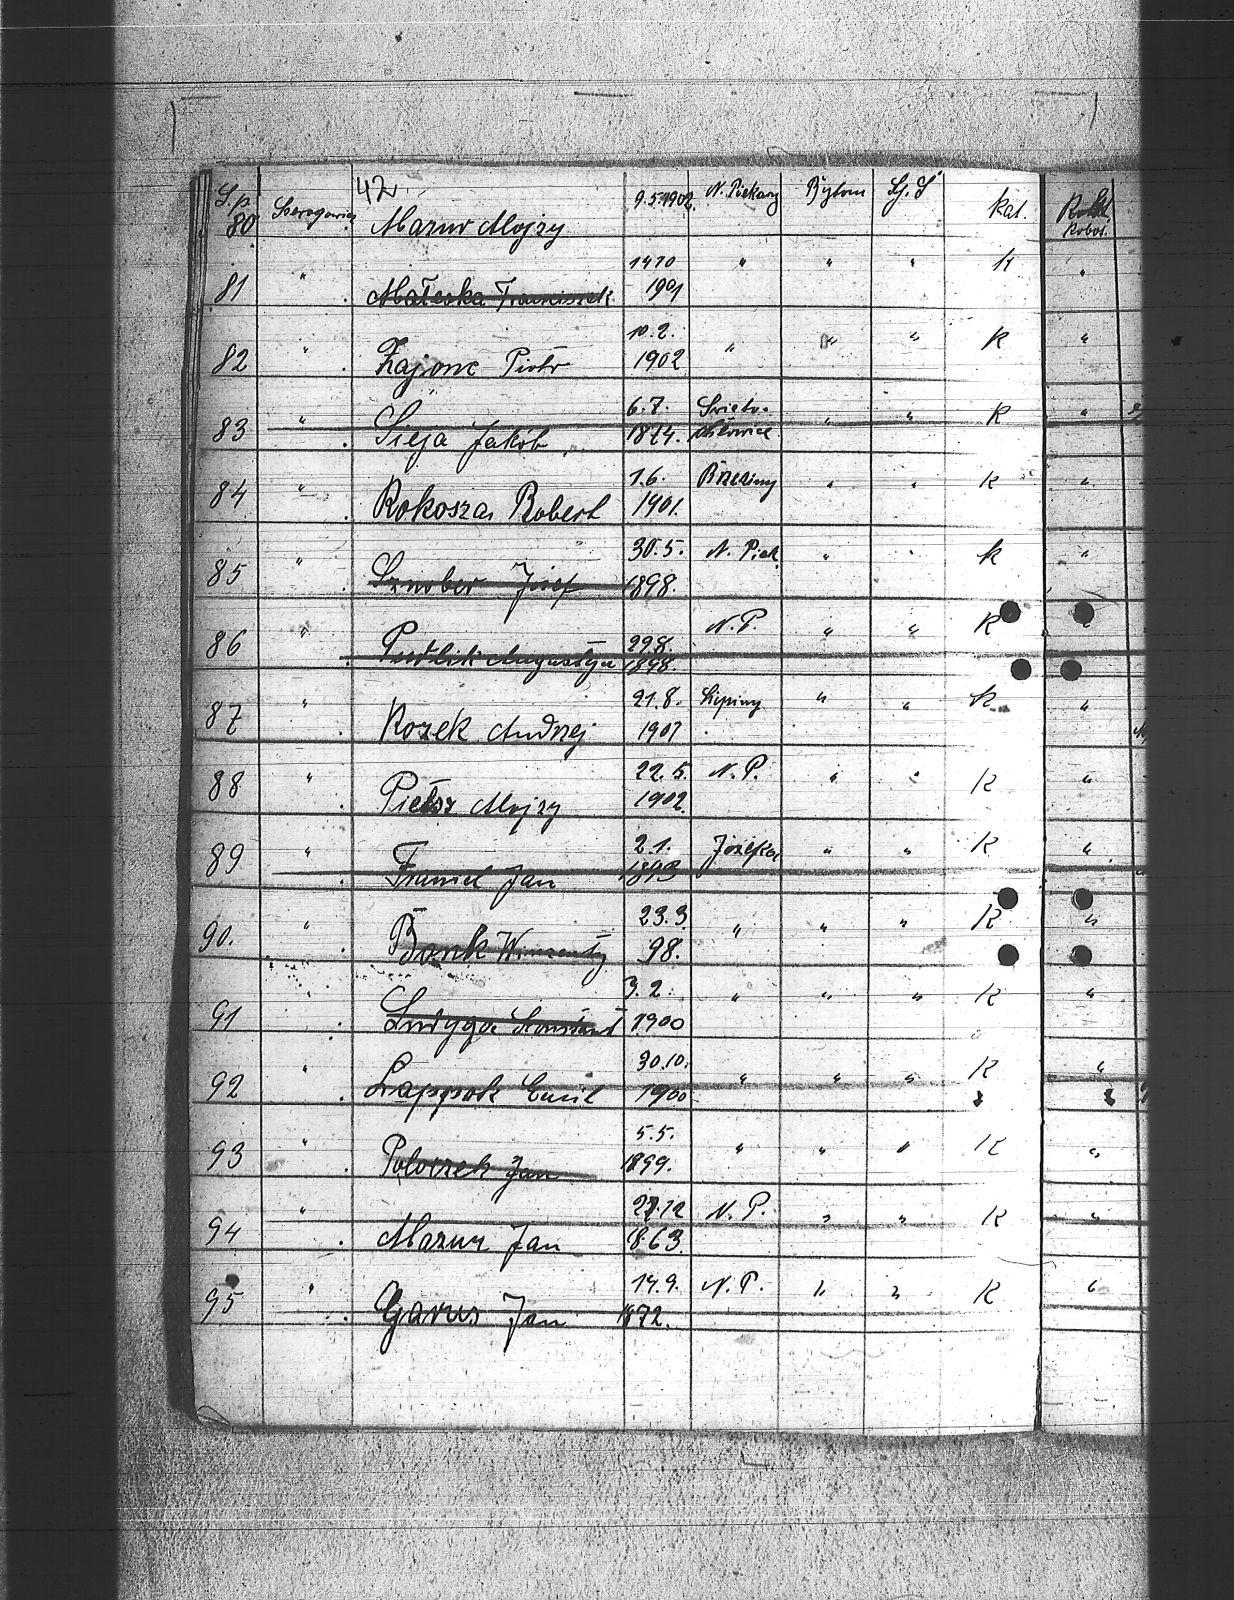 L.p. 42
80 Szeregowiec Mazur Alojzy 9.5.1902. N. Piekary Bytom G. Ś. kat. Robot.
81 " Franciszek 1901 " " " k "
82 " Zajonc Piotr 10.2. 1902 " " " k "
83 " Sieja Jakób 6.7. 1874. Święto-chłowice " " k "
84 " Rokosza Robert 1.6. 1901. Brzeziny " " k "
85 " Sznober Józef 30.5. 1898. N. Piek. " " k "
86 " Augustyn 29.8. 1898. N.P. " " K "
87 " Kozek Andrzej 21.8. 1901 Lipiny " " k "
88 " Pietsz Alojzy 22.5. 1902. N.P. " " K "
89 " Franiel Jan 2.1. 1893 Józefka " " K "
90. " Bonk Wincenty 23.3. 98. " " " K "
91 " 3.2. 1900 " " " K "
92 " Emil 30.10. 1900 " " " K "
93 " Poloczek Jan 5.5. 1899. " " " K "
94 " Mazur Jan 27.12 1863. N.P. " " K "
95 " Garus Jan 14.9. 1872. N.P. " " K "